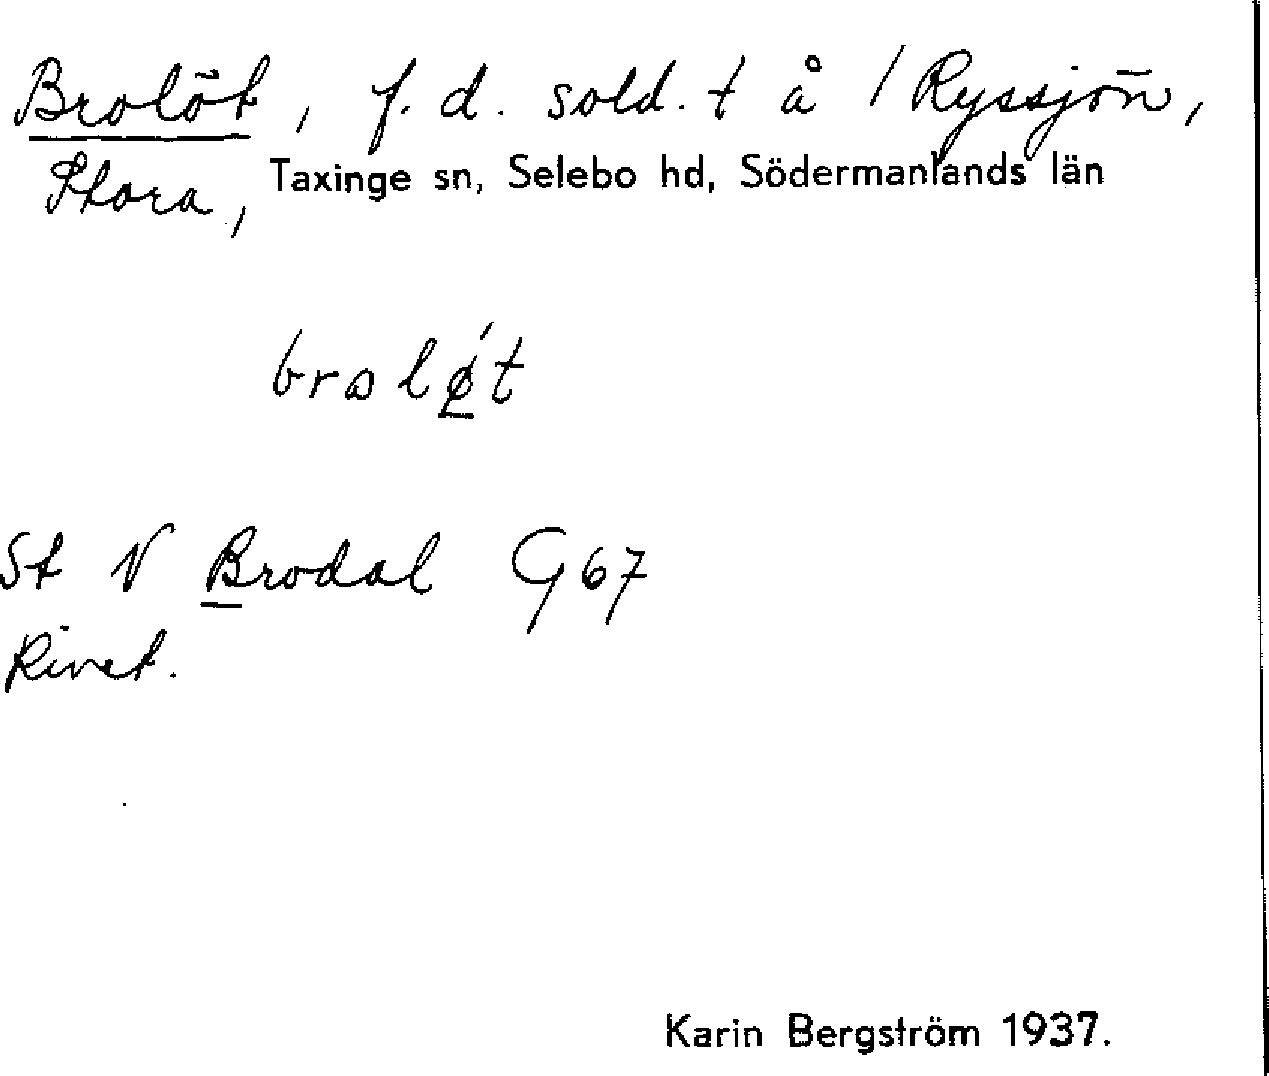 Brolöt, f.d. sold. t å / Ryssjön,
Stora, Taxinge sn, Selebo hd, Södermanlands län
brolǿ̱t
St N Brodal G67
Rivet.
Karin Bergström 1937.